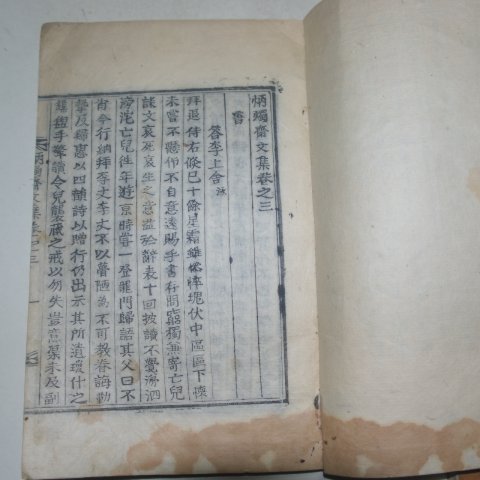 炳燭齋文集卷之三
書
答李上舍泳
拜違侍右倏已十餘星霜雖滓穢塊伏中區區下懷
未嘗不懸仰不自意遠賜手書存問窮獨無寄亡兒
誄文哀死哀生之意溢於辭表十回披讀不覺涕泗
滂沱亡兒往年遊京時嘗一登龍門歸語其父曰不
肖今行納拜李丈李丈不以蒙陋爲不可敎眷誨勤
摯及歸惠以四韻詩以贈行仍出示其所遺瓊什之
韻 手擎讀令兒襲藏之戒以勿失豈意墓未及副
炳燭齋文集卷之三 一